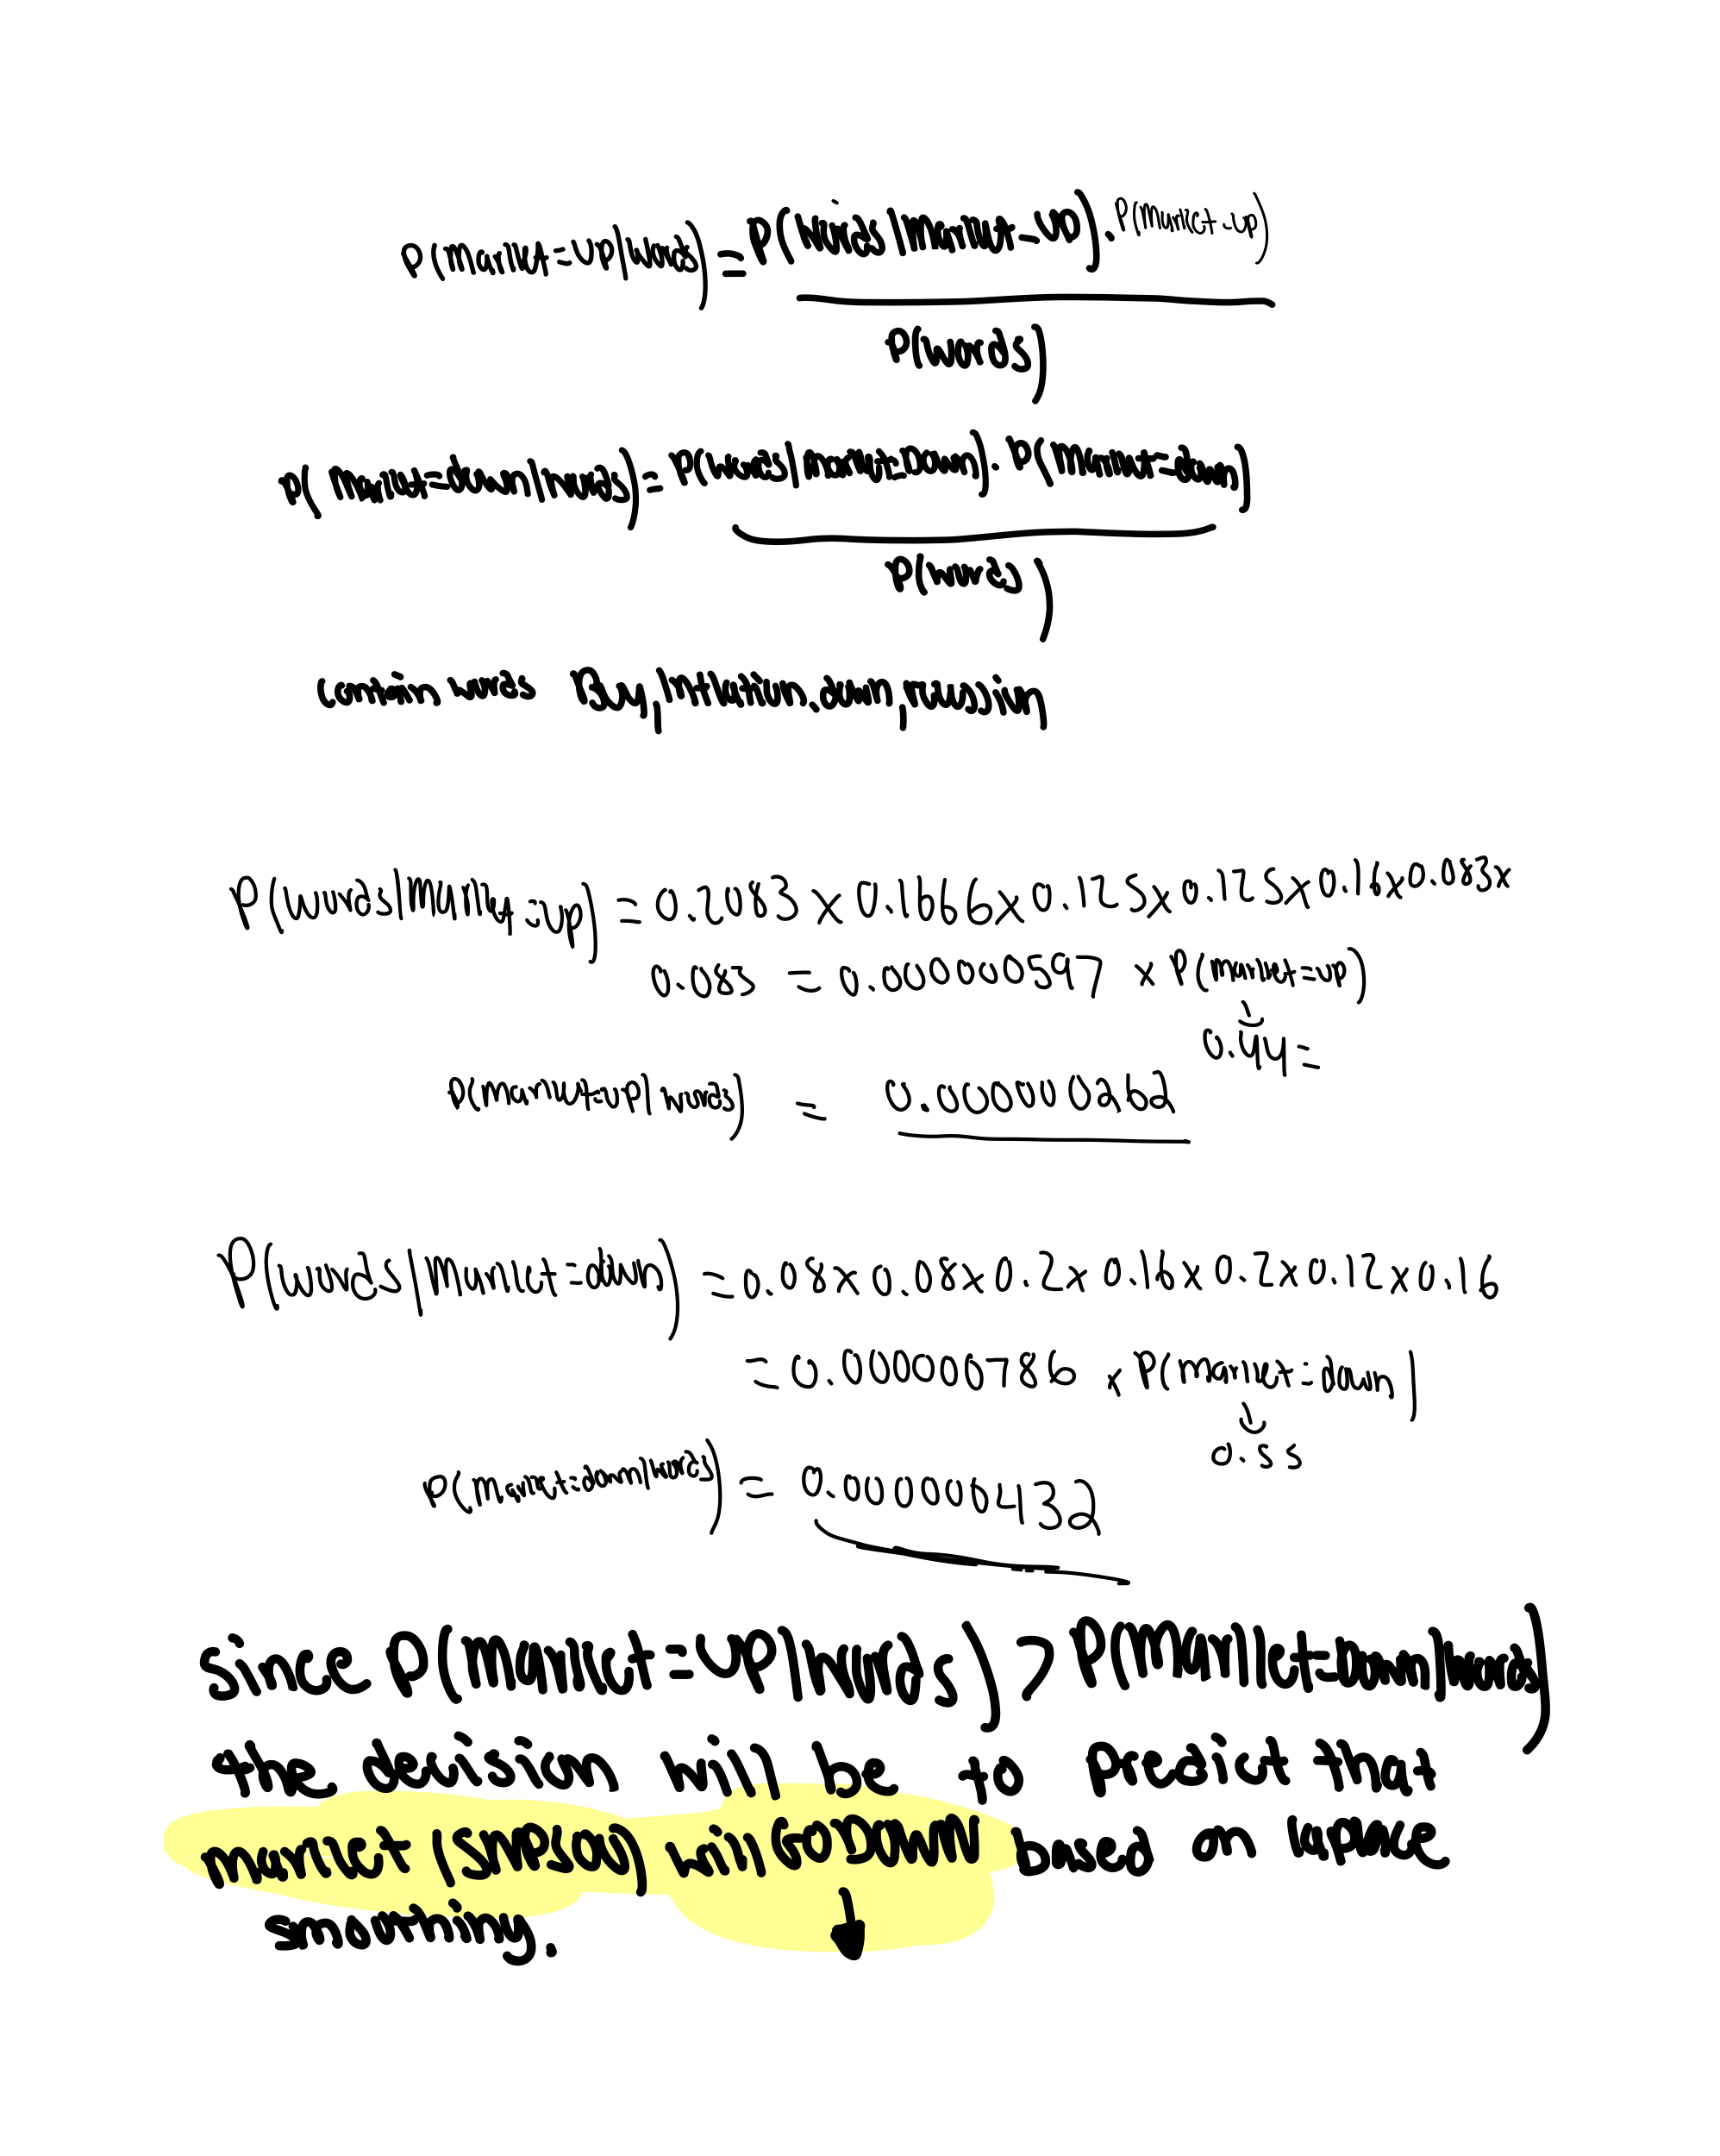 P(market=up|words) = P(words|market=up).P(market=up)
P(words)
P(market=down|words) = P(words|market=Down). P(market=down)
P(words)
contain words Buy, Inflation, down, recession
P(words|Market=up) = 0.2083 x 0.1666 x 0.125 x 0.125 x 0.16 x 0.083 x
0.083 = 0.000000597 x P(market=up)
0.44 =
P(market=up|words) = 0.000000262
P(words|Market=down) = 0.08 x 0.08 x 0.2 x 0.16 x 0.2 x 0.12 x 0.16
= 0.000000786 x P(market=down)
0.55
P(market=down|words) = 0.000000432
since P(Market=UP|words) > P(Market=Down|words)
the decision will be to predict that
market (SNP500) will GO DOWN based on laplace
smoothing.